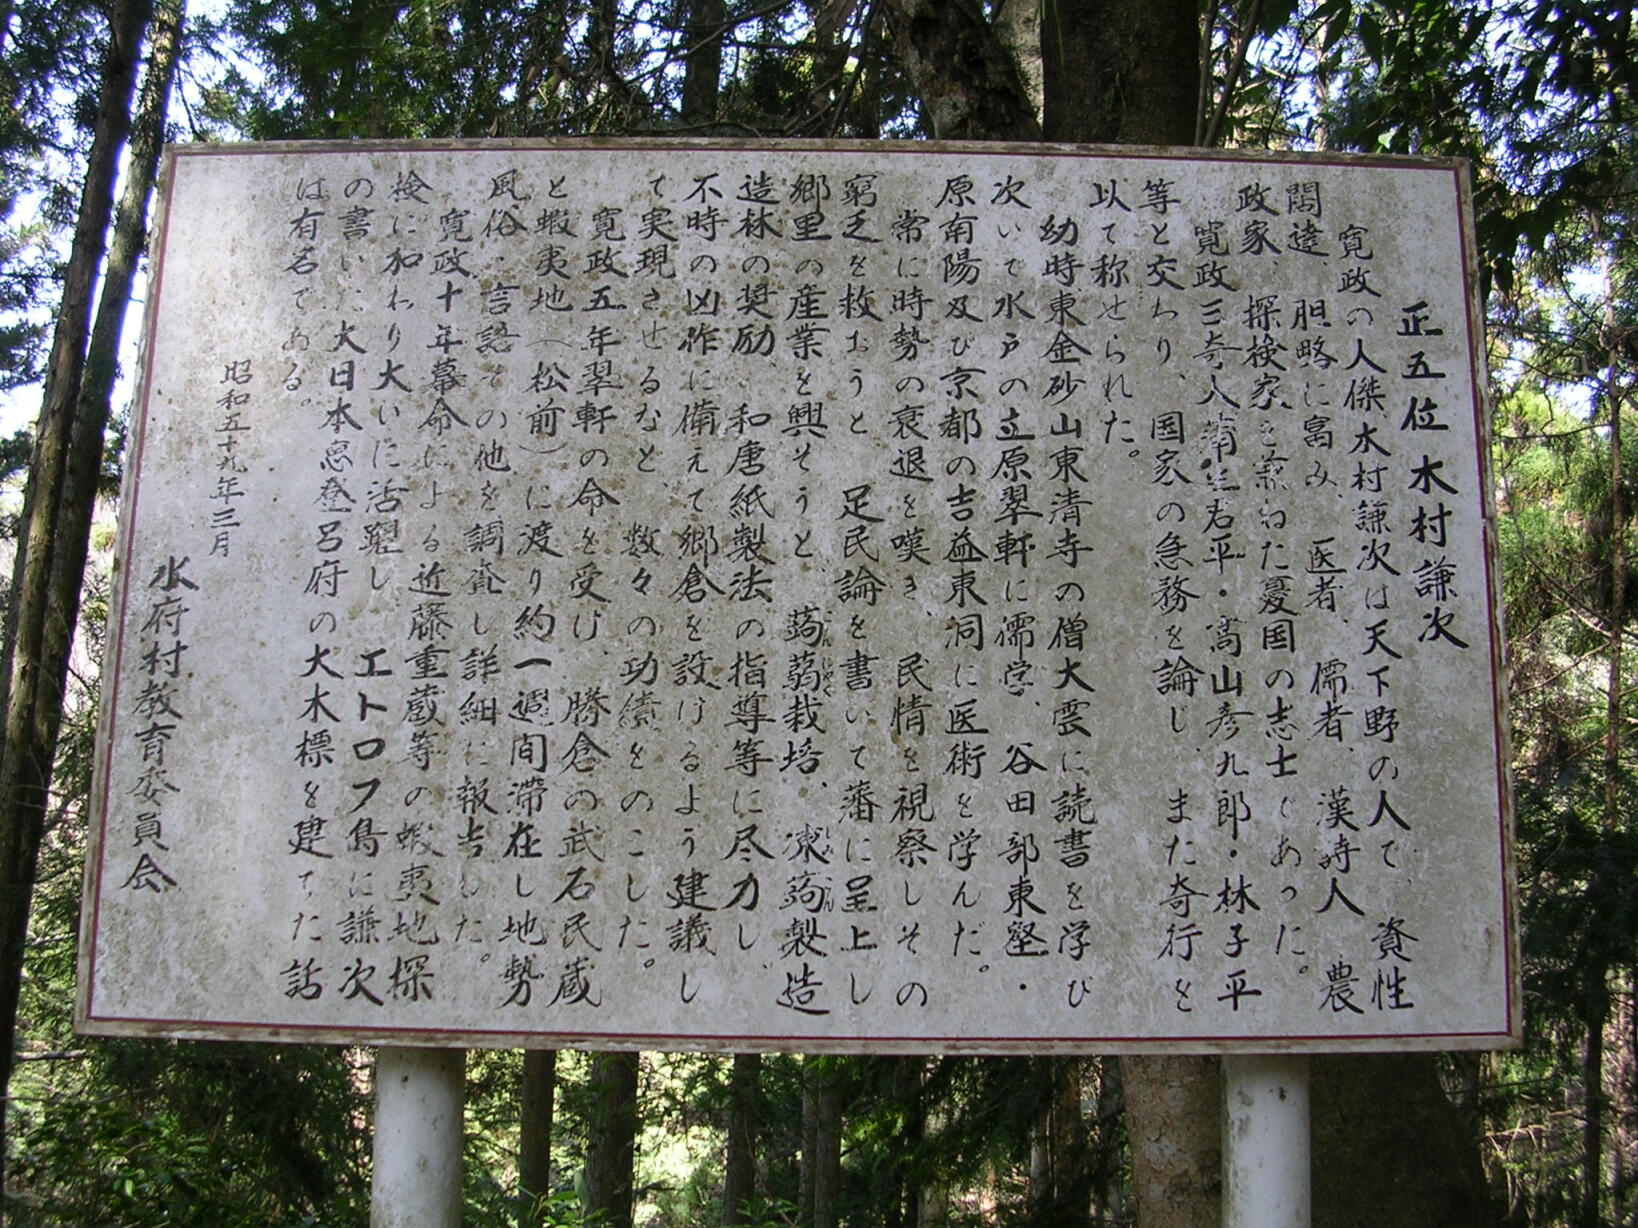 正五位 木村謙次
寛政の人傑木村謙次は天下野の人で、資性
闊達、胆略に富み、医者、儒者、漢詩人、農
政家、探検家を兼ねた憂国の志士であった。
寛政三奇人蒲生君平・高山彦九郎・林子平
等と交わり、国家の急務を論じ、また奇行を
以て称せられた。
幼時東金砂山東清寺の僧大雲に読書を学び
次いで水戸の立原翠軒に儒学、谷田部東壑・
原南陽及び京都の吉益東洞に医術を学んだ。
常に時勢の衰退を嘆き、民情を視察しその
窮乏を救おうと、足民論を書いて藩に呈上し
郷里の産業を興そうと、蒟蒻栽培、凍蒟製造
造林の奨励、和唐紙製法の指導等に尽力し、
不時の凶作に備えて郷倉を設けるよう建議し
て実現させるなど、数々の功績をのこした。
寛政五年翠軒の命を受け、勝倉の武石民蔵
と蝦夷地（松前）に渡り約一週間滞在し地勢
風俗・言語その他を調査し詳細に報告した。
寛政十年幕命による近藤重蔵等の蝦夷地探
検に加わり大いに活躍し、エトロフ島に謙次
の書いた大日本恵登呂府の大木標を建てた話
は有名である。
昭和五十九年三月
水府村教育委員会